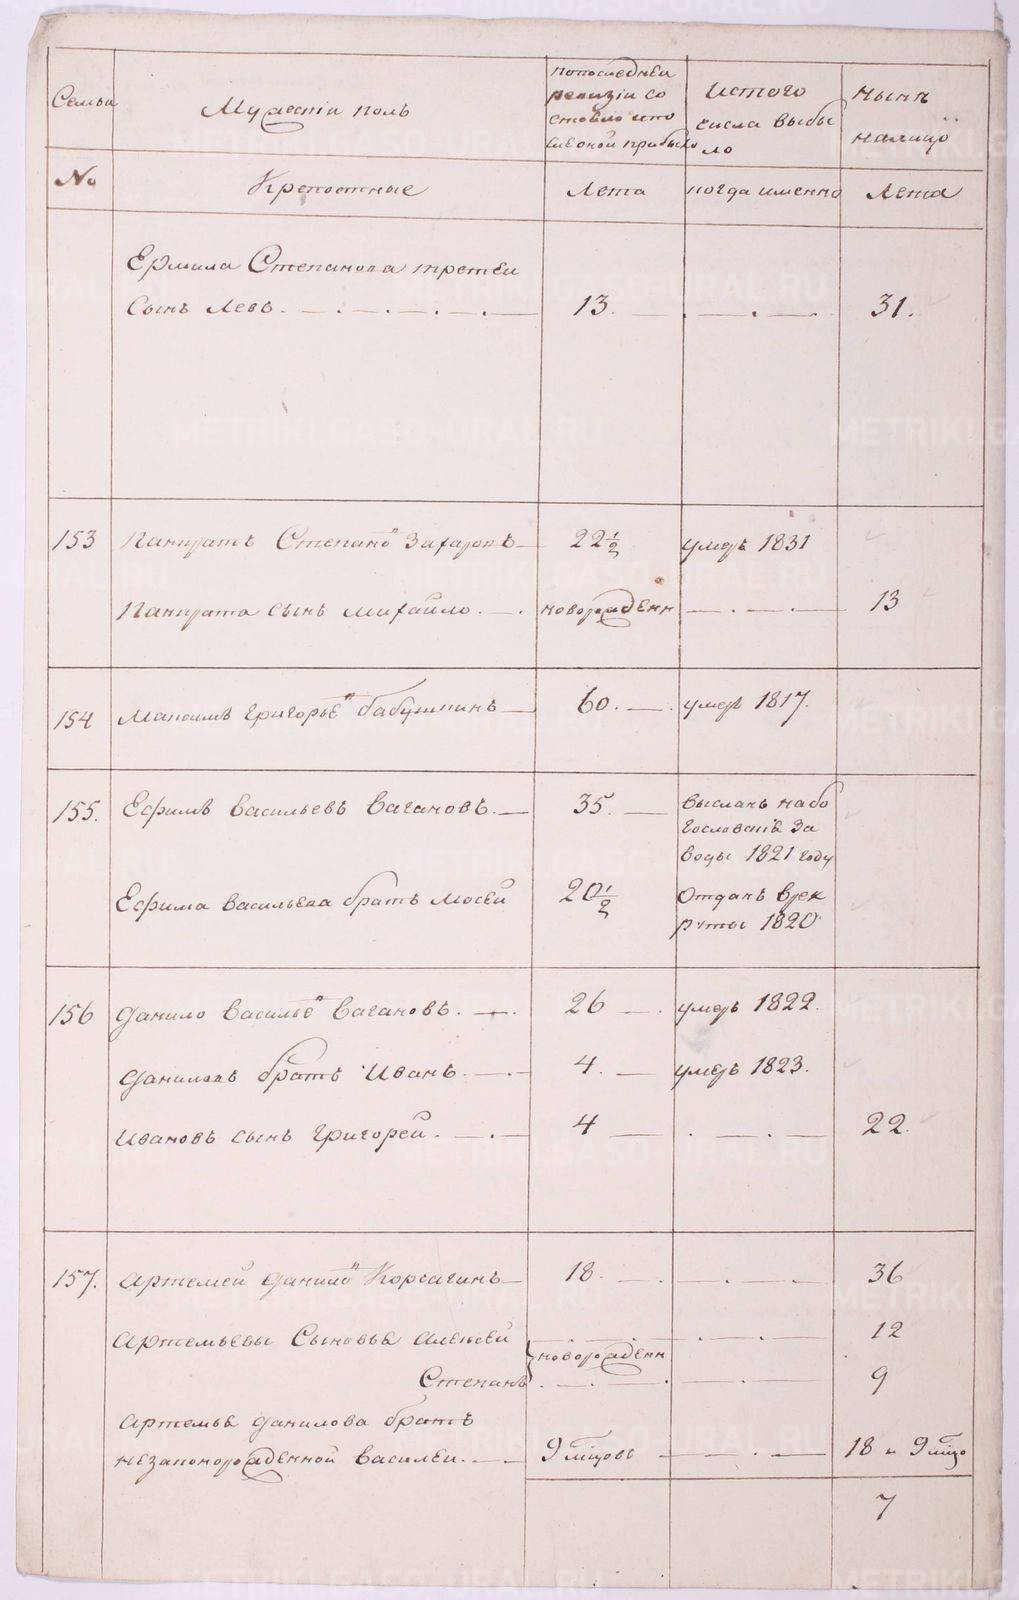 Семьи
Мужескiи полъ
попоследнеи
ревизiи со
стояло ипо
слеоной прибыло
Истого
числа выбы
ло
нынѣ
налицо
No
Крепостные
Лета
когда именно
Лета
Ермила Степанова третеи
сынъ Левъ. 13. 31.
153 Панкратъ Степано Захаровъ 22 1/2 умеръ 1831
Панкрата сынъ Михайло. новорожденн 13
154 Максимъ Григорье Бабушкинъ 60. умеръ 1817.
155. Ефимъ Васильевъ Вагановъ. 35. высланъ на бо
гословскiе за
воды 1821 году
Ефима Васильева братъ Мосей 20 1/2 Отданъ врек
руты 1820
156 Данило Василье Вагановъ. 26 умеръ 1822.
Даниловъ братъ Иванъ. 4. умеръ 1823.
Ивановъ сынъ Григорей. 4 22.
157. Артемей Данило Корсагинъ 18. 36
Артемьевы Сыновья Алексей 12
новорожденн
Степанъ 9
Артемья Данилова братъ
незаконорожденной Василеи. 9 мѣцовъ 18 и 9 мѣцо
7
METRIKI.GASO-URAL.RU